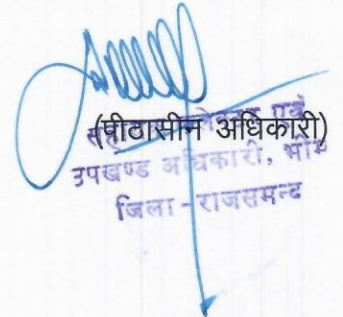 (पीठासीन अधिकारी)
एवं
उपखण्ड अधिकारी, भीम
जिला - राजसमन्द